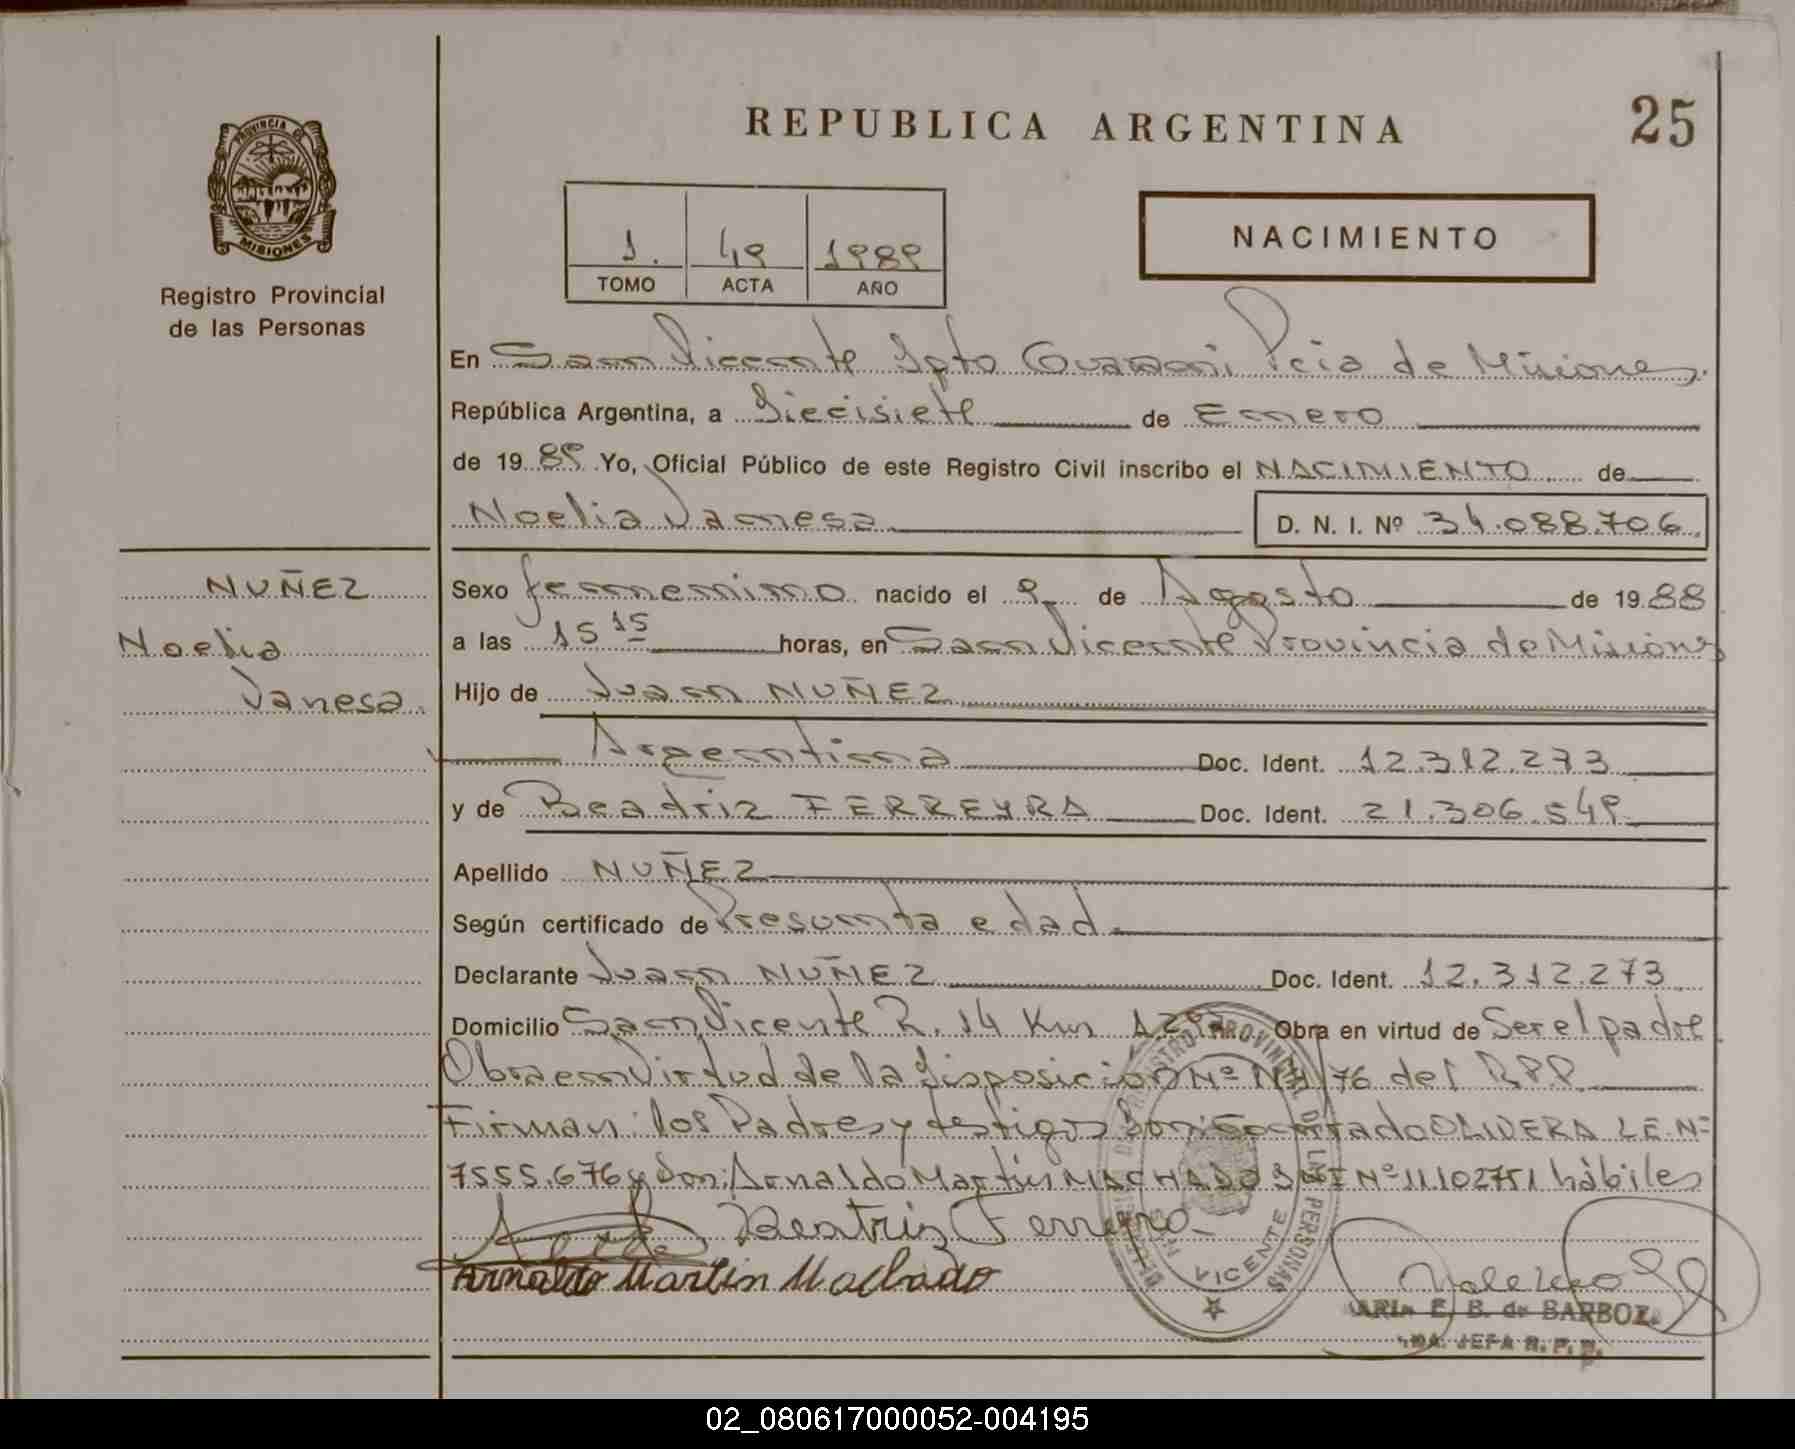 REPUBLICA ARGENTINA
25
PROVINCIA DE
MISIONES
Registro Provincial
de las Personas
1. 49 1989
TOMO ACTA AÑO
NACIMIENTO
En San Vicente Dpto Guarani Pcia de Misiones.
República Argentina, a Diecisiete de Enero
de 1989 Yo, Oficial Público de este Registro Civil inscribo el NACIMIENTO de
Noelia Vanesa D. N. I. Nº 34.088.706
NUÑEZ
Noelia
Vanesa
Sexo femenino nacido el 9 de Agosto de 1988
a las 15 15 horas, en San Vicente Provincia de Misiones
Hijo de Juan NUÑEZ
Argentina Doc. Ident. 12.312.273
y de Beatriz FERREYRA Doc. Ident. 21.306.549
Apellido NUÑEZ
Según certificado de Presunta edad.
Declarante Juan NUÑEZ Doc. Ident. 12.312.273
Domicilio San Vicente R. 14 Km Obra en virtud de Ser el padre
Obra en Virtud de la Disposición Nº /76 del RPP
Firman: los Padres y testigos Don: OLIVERA L.E. Nº
7555.676 y Don: Arnaldo Martin MACHADO DNI Nº 11102751 hábiles
Beatriz Ferreyra
Arnaldo Martin Machado
VICENTE
E. B. de BARBOZA
JEFA R. P. P.
02_080617000052-004195